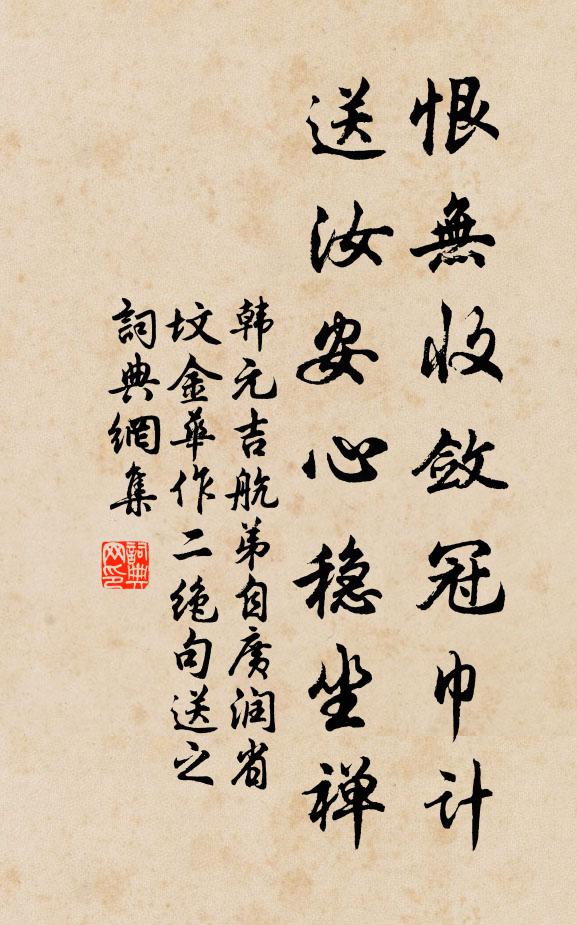 恨無收斂冠巾計
送汝安心穩坐禅
韩元吉航弟自廣润省
坟金華作二绝句送之
詞典網集
詞典網印